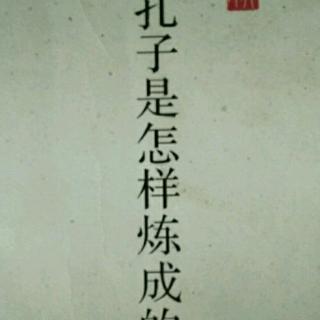 孔子是怎样炼成的